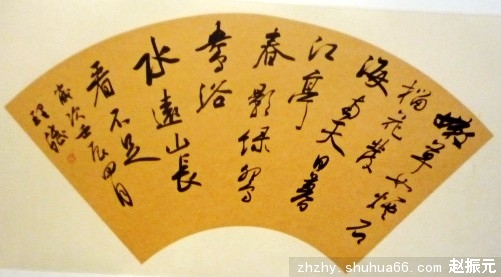 嫩草如烟石
榴花發
海南天日暮
江亭
春影绿鸳
鸯浴
水遠山長
看不足
歲次壬辰四月
zhzhy.shuhua66.com 赵振元